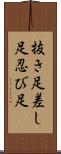 抜き足差し
足忍び足